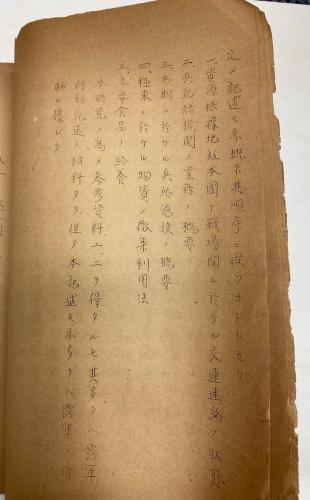 定ノ記述モ亦概ネ其順序ニ従フコトトセリ
一、資源根拠地故本國ト戦場間ニ於ケル交通連絡ノ状態
二、兵站諸機関ノ業務ノ概要
三、各期ニ於ケル兵站施設ノ概要
四、極東ニ於ケル物資ノ徴集利用法
五、主要食品ノ給養
本研究ノ為メ参考資料一、二ヲ得タルモ其多クハ露軍
行動記述ノ材料タリ、従テ本記述モ亦多クハ露軍ノ行
動ニ據レリ